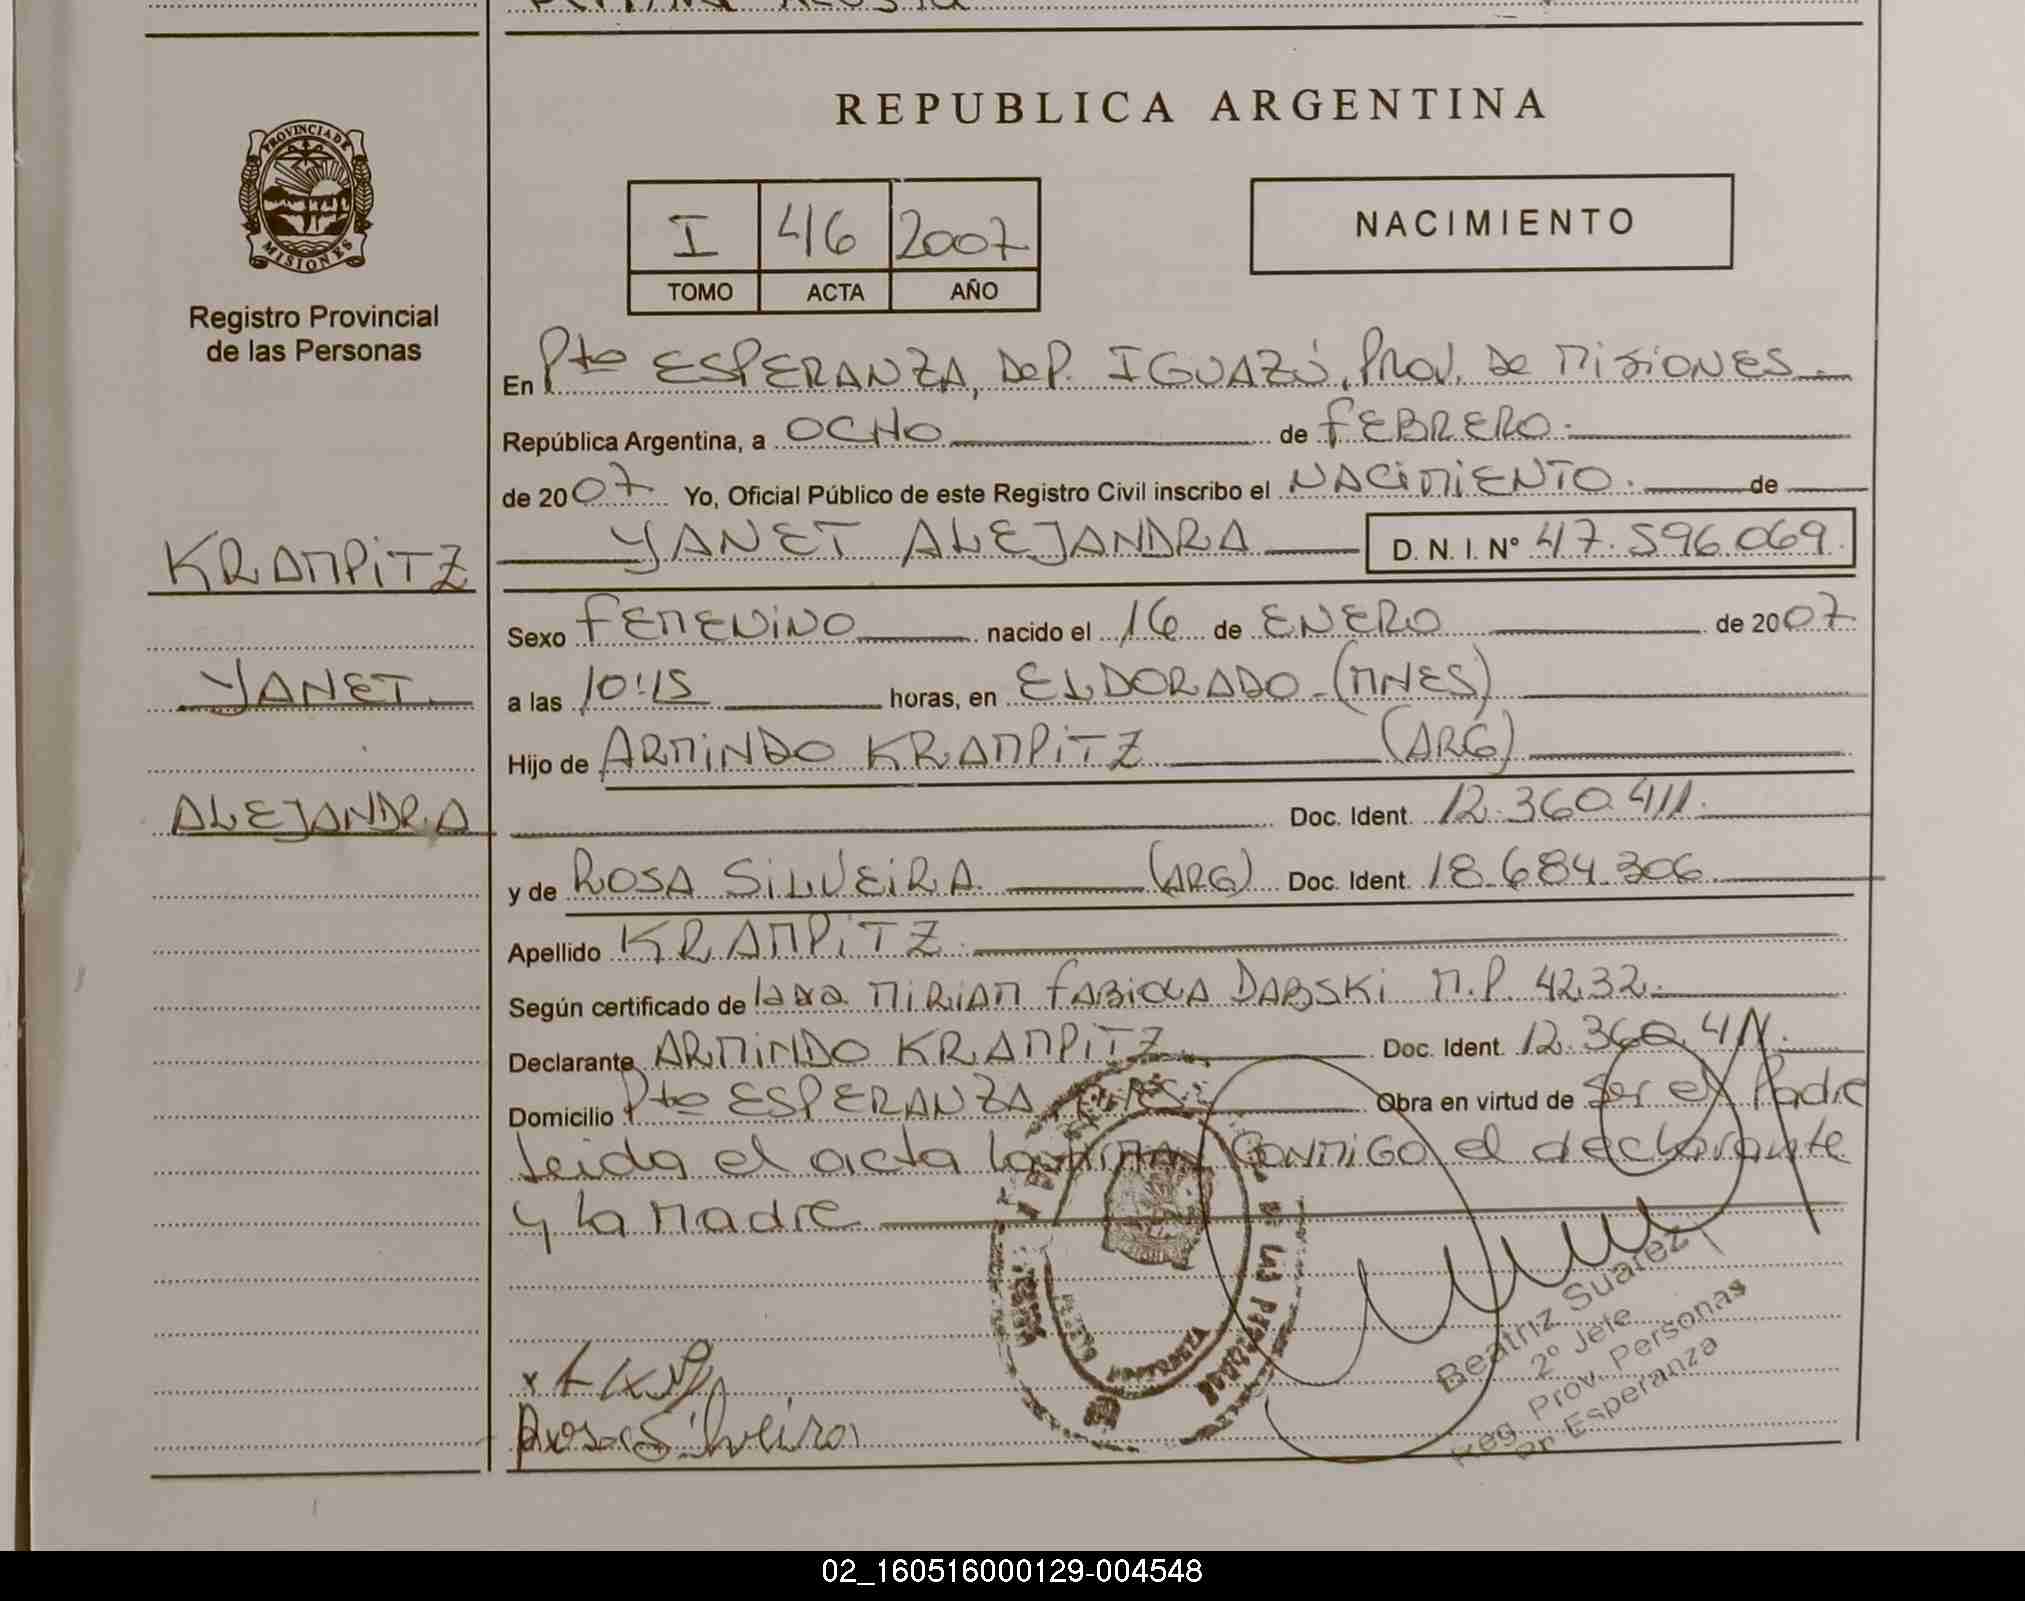 REPUBLICA ARGENTINA
PROVINCIA DE MISIONES
Registro Provincial
de las Personas
I 46 2007
TOMO ACTA AÑO
NACIMIENTO
En Pto ESPERANZA, DeP. IGUAZÚ, PROV. De MISIONES
República Argentina, a OCHO de FEBRERO.
de 2007 Yo, Oficial Público de este Registro Civil inscribo el NACIMIENTO. de
YANET ALEJANDRA D. N. I. Nº 47.596.069
KRAMPITZ
YANET
ALEJANDRA
Sexo FEMENINO nacido el 16 de ENERO de 2007
a las 10:15 horas, en ELDORADO (MNES)
Hijo de ARMINDO KRAMPITZ (ARG)
Doc. Ident. 12.360.411.
y de ROSA SILVEIRA (ARG) Doc. Ident. 18.684.306
Apellido KRAMPITZ
Según certificado de MIRIAM FABIOLA DABSKI M.P. 4232.
Declarante ARMINDO KRAMPITZ Doc. Ident. 12.360.411.
Domicilio Pto ESPERANZA Obra en virtud de ser el Padre
Leida el acta CONMIGO el declarante
y la Madre
Rosa Silveira
Beatriz Suarez
2º Jefe
Reg. Prov. Personas
Esperanza
02_160516000129-004548